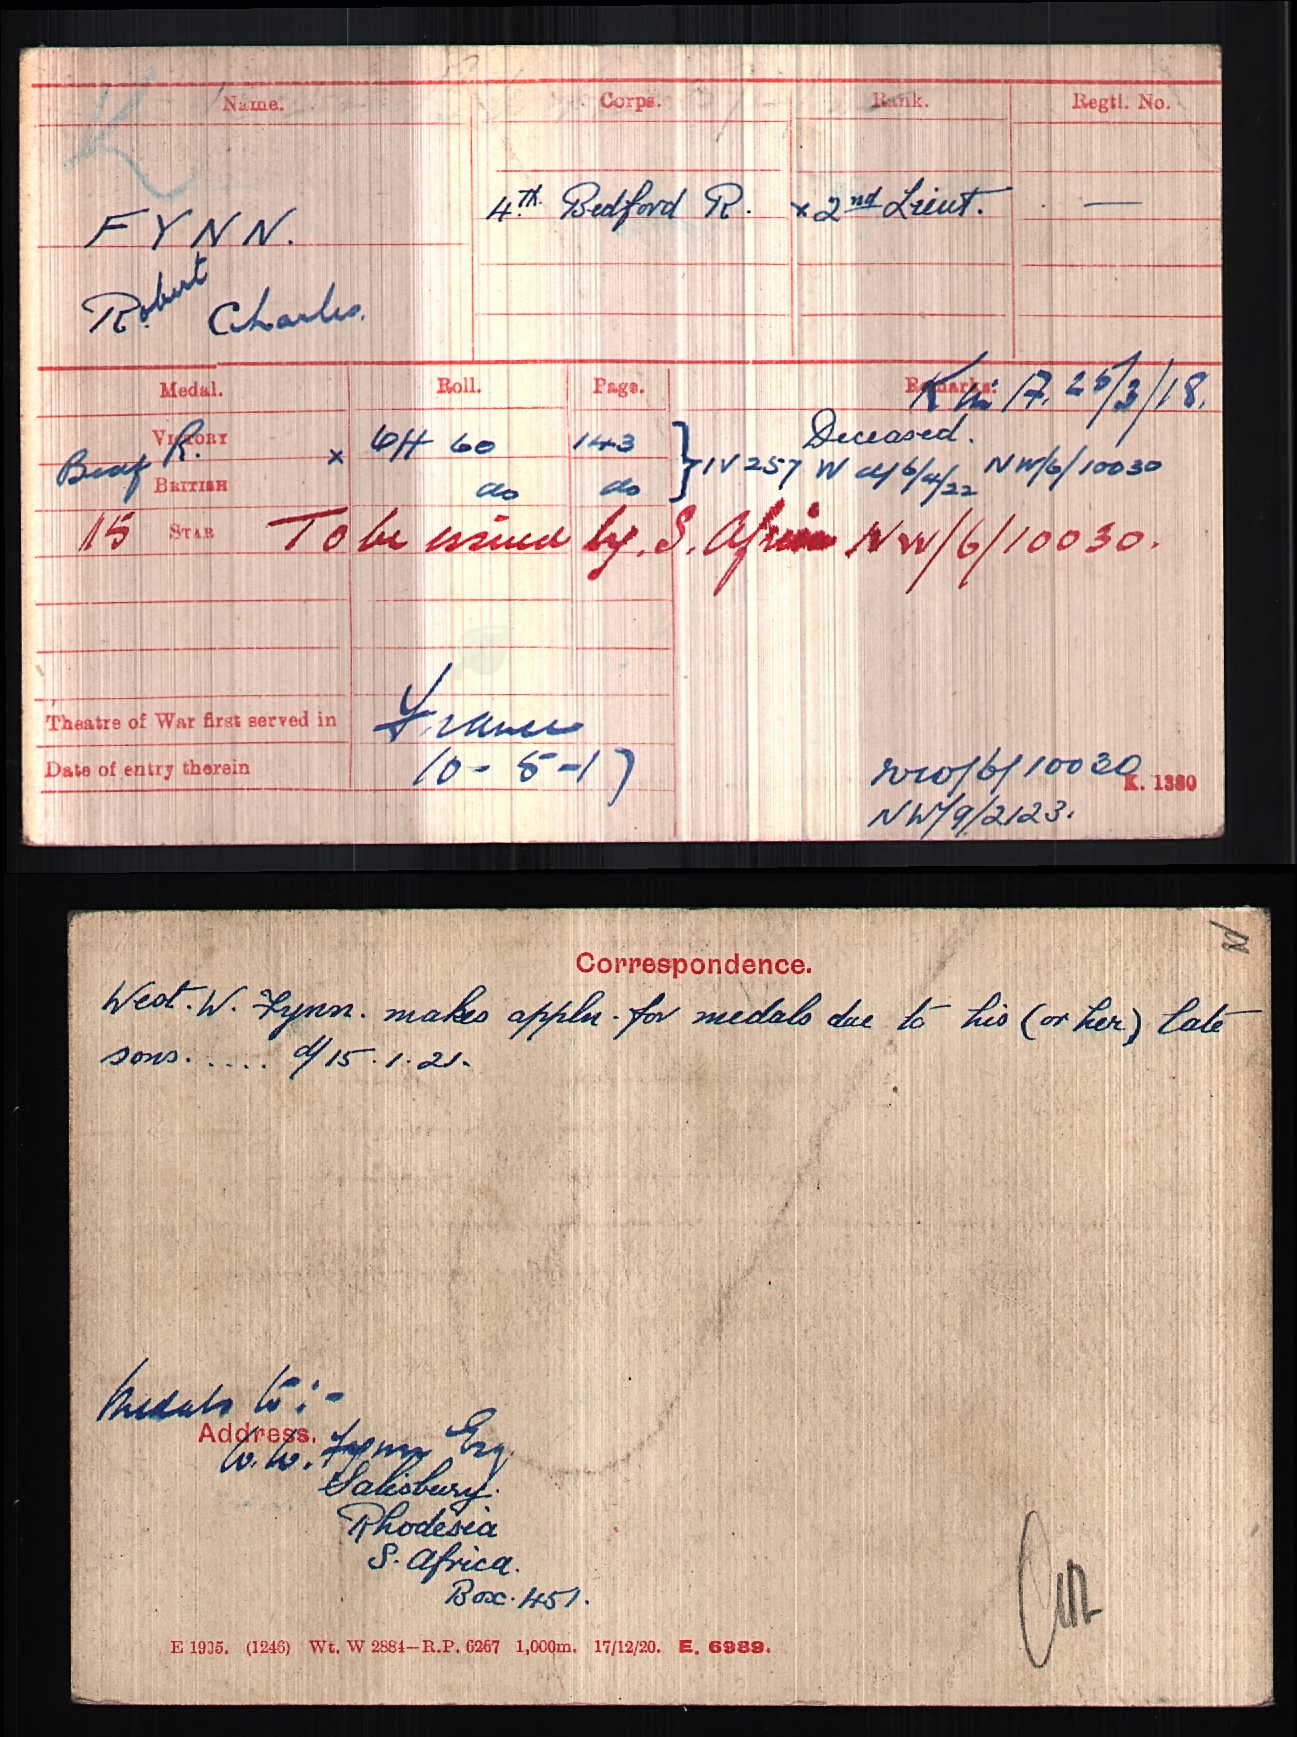 Name. Corps. Rank. Regtl. No.
4.th Bedford R. x 2nd Lieut. —
FYNN.
Robert Charles.
Medal. Roll. Page. Remarks.
K in A. 25/3/18.
Deceased.
VICTORY
Bedf R. x OH 60 143 } IV 257 W d/6/4/22 NW/6/10030
BRITISH do do
15 STAR To be issued by. S. Africa NW/6/10030.
Theatre of War first served in France
Date of entry therein 10-5-17
NW/6/10030
K. 1380
NW/9/2123.
Correspondence.
West. W. Fynn. makes appln. for medals due to his (or her) late
sons..... d/15.1.21.
Medals to:-
Address.
W. W. Fynn Esq.
Salisbury.
Rhodesia
S. Africa.
Box. 451.
E 1935. (1246) Wt. W 2884—R.P. 6267 1,000m. 17/12/20. E. 6989.